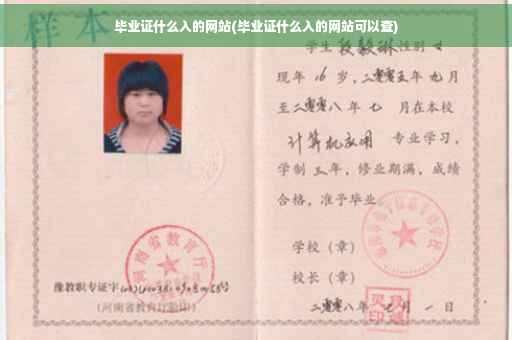 毕业证什么入的网站(毕业证什么入的网站可以查)
样本
学生 段毅琳 性别 女
现年 16 岁，二零零五年 九 月
至二零零八 年 七 月在本校
计算机应用 专业学习，
学制 三 年，修业期满，成绩
合格，准予毕业
学校（章）
校长（章）
二零零八年 月 一 日
河南省教育厅
豫教职专证字
(河南省教育厅验印)